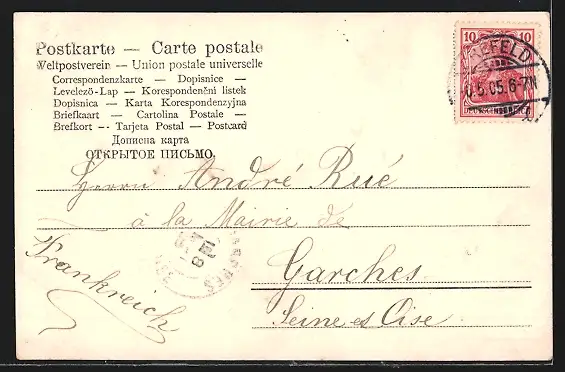 Postkarte — Carte postale
Weltpostverein — Union postale universelle
Correspondenzkarte — Dopisnice —
Levelező-Lap — Korespondenční listek
Dopisnica — Karta Korespondenzyjna
Briefkaart — Cartolina Postale —
Brefkort — Tarjeta Postal — Postcard
Дописна карта
ОТКРЫТОЕ ПИСЬМО.
10 10
5.05.6-7N
Herrn André Rué
à la Mairie de
Garches
Seine et Oise
Frankreich
GARCHES